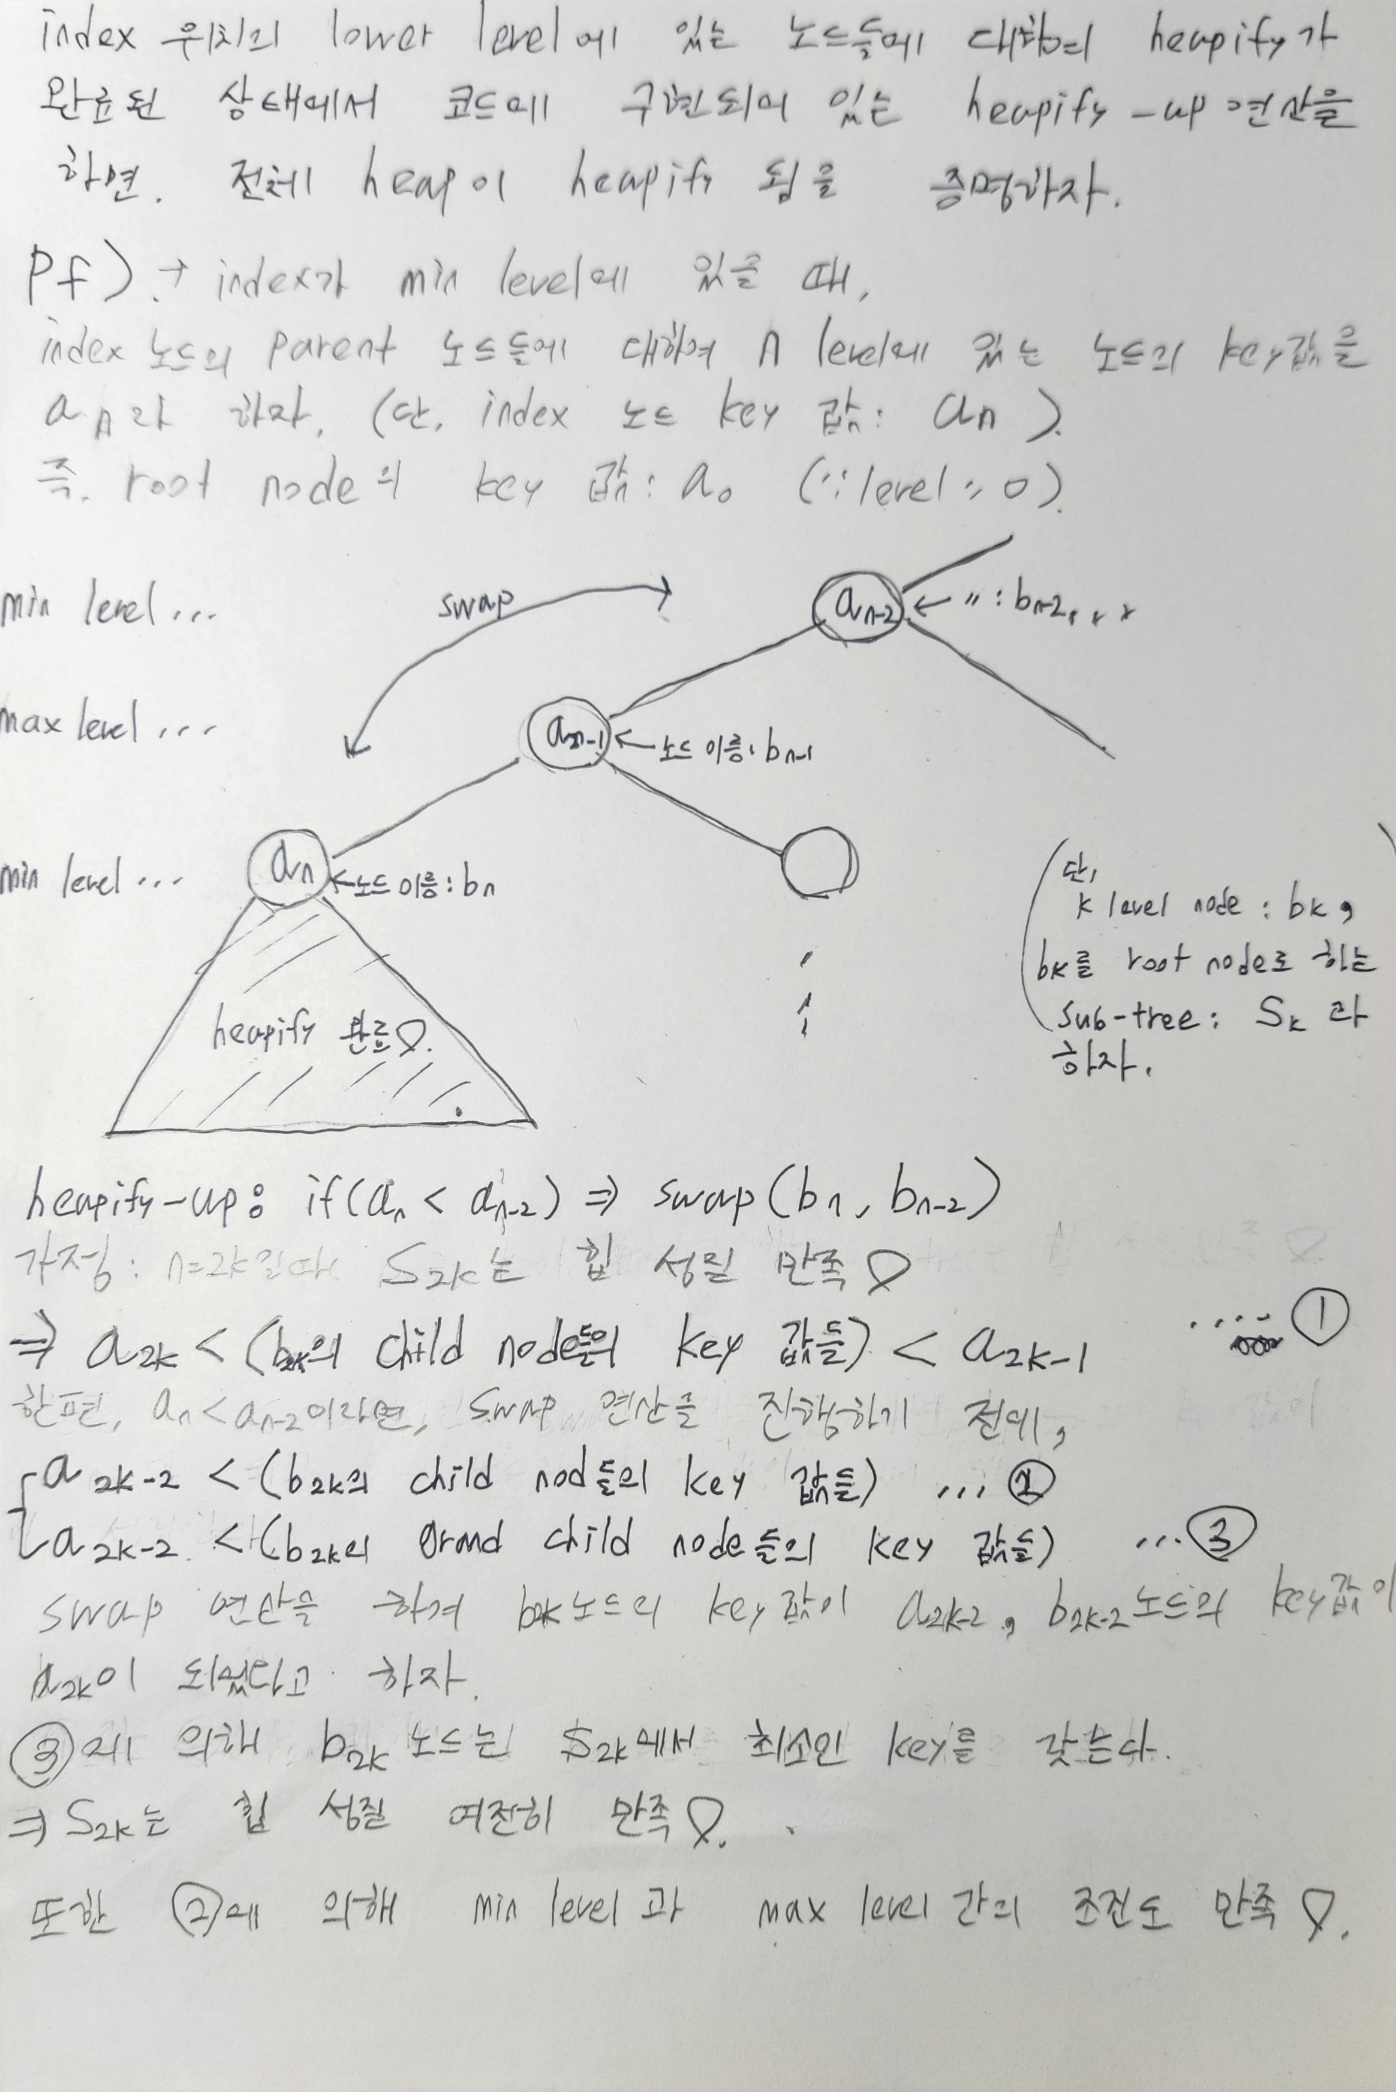 index 위치의 lower level에 있는 노드들에 대하여 heapify가
완료된 상태에서 코드에 구현되어 있는 heapify-up 연산을
하면. 전체 heap이 heapify 됨을 증명하자.
pf) → index가 min level에 있을 때,
index 노드의 parent 노드들에 대하여 n level에 있는 노드의 key값을
an라 하자. (단, index 노드 key 값: an).
즉. root node의 key 값: a0 (∵ level = 0).
min level...
swap
an-2
← 〃: bn-2, ...
max level...
an-1
← 노드 이름: bn-1
min level...
an
← 노드 이름: bn
heapify 완료.
(단,
k level node: bk,
bk를 root node로 하는
sub-tree: Sk 라
하자.
heapify-up: if(an < an-2) ⇒ swap(bn, bn-2)
가정: n=2k일때 S2k는 힙 성질 만족
⇒ a2k < (b2k의 child node들의 key 값들) < a2k-1 .... ①
한편, an<an-2이라면, swap 연산을 진행하기 전에,
a2k-2 < (b2k의 child node들의 key 값들) ... ②
a2k-2 < (b2k의 Grand child node들의 key 값들) ... ③
swap 연산을 하여 b2k노드의 key값이 a2k-2, b2k-2노드의 key값이
a2k이 되었다고 하자.
③에 의해 b2k 노드는 S2k에서 최소인 key를 갖는다.
⇒ S2k는 힙 성질 여전히 만족.
또한 ②에 의해 min level과 max level간의 조건도 만족.